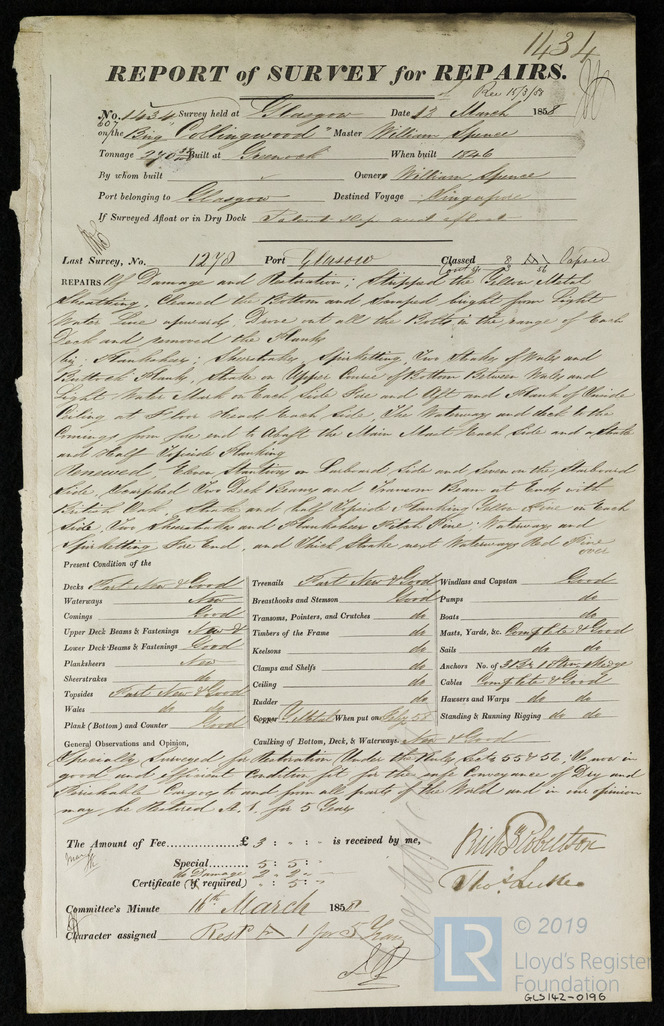 1434
REPORT of SURVEY for REPAIRS.
Rec 15/3/58
No. 1434 Survey held at Glasgow Date 13 March 1858
607
on the Brig "Collingwood" Master William Spence
Tonnage 270 Built at Greenock When built 1846
By whom built Owners William Spence
Port belonging to Glasgow Destined Voyage Singapore
If Surveyed Afloat or in Dry Dock Patent Slip and afloat
Last Survey, No. 1278 Port Glasgow Classed 8 A1 Expired
REPAIRS Of Damage and Restoration; Stripped the Yellow Metal
Sheathing, Cleaned the Bottom and Scraped bright from Light
Water Line upwards, Drove out all the Bolts in the range of Each
Deck and removed the Planks
Viz. Planksheer, Sheerstrakes, Spirketting, Two Strakes of Wales and
Buttock Plank, Strake on Upper Course of Bottom Between Wales and
Light Water Mark on Each Side Fore and Aft and Plank of Inside
Ceiling at Floor Heads Each Side, The Waterway and deck to the
Comings from fore end to Abaft the Main Mast Each Side and a Strake
and Half Topside Planking
Renewed Eleven Stantions on Larboard Side and Seven on the Starboard
Side, Scarphed Two Deck Beams and Transom Beam at Ends with
British Oak, Strake and half Topside Planking Yellow Pine on Each
Side, Two Sheerstrakes and Plankshear Pitch Pine, Waterways and
Spirketting Fore End, and Thick Strake next Waterways Red Pine
over
Present Condition of the
Decks Part New & Good Treenails Part New & Good Windlass and Capstan Good
Waterways New Breasthooks and Stemson Good Pumps do
Comings Good Transoms, Pointers, and Crutches do Boats do
Upper Deck Beams & Fastenings New & Timbers of the Frame do Masts, Yards, &c. Complete & Good
Lower Deck Beams & Fastenings Good Keelsons do Sails do do
Planksheers New Clamps and Shelfs do Anchors No. of 3 Brs 1 Strm & Kedge
Sheerstrakes do Ceiling do Cables Complete & Good
Topsides Part New & Good Rudder do Hawsers and Warps do do
Wales do do Copper Yel Metal When put on Feby 58 Standing & Running Rigging do do
Plank (Bottom) and Counter Good Caulking of Bottom, Deck, & Waterways New & Good
General Observations and Opinion,
Specially Surveyed for Restoration Under the Rules, Sects 55 & 56, Is now in
good and efficient Condition fit for the safe Conveyance of Dry and
Perishable Cargoes to and from all parts of the World and in our opinion
may be Restored A.1. for 5 Years
The Amount of Fee £ 3 : - : - is received by me,
Special 5 : 5 : -
do Damage 2 - 2 - -
Certificate (If required) - : 5 : -
Richd Robertson
Thos Luke
Committee's Minute 16th March 1858
Character assigned Restd A 1 for 5 Years
© 2019
LR
Lloyd's Register
Foundation
GLS142-0196